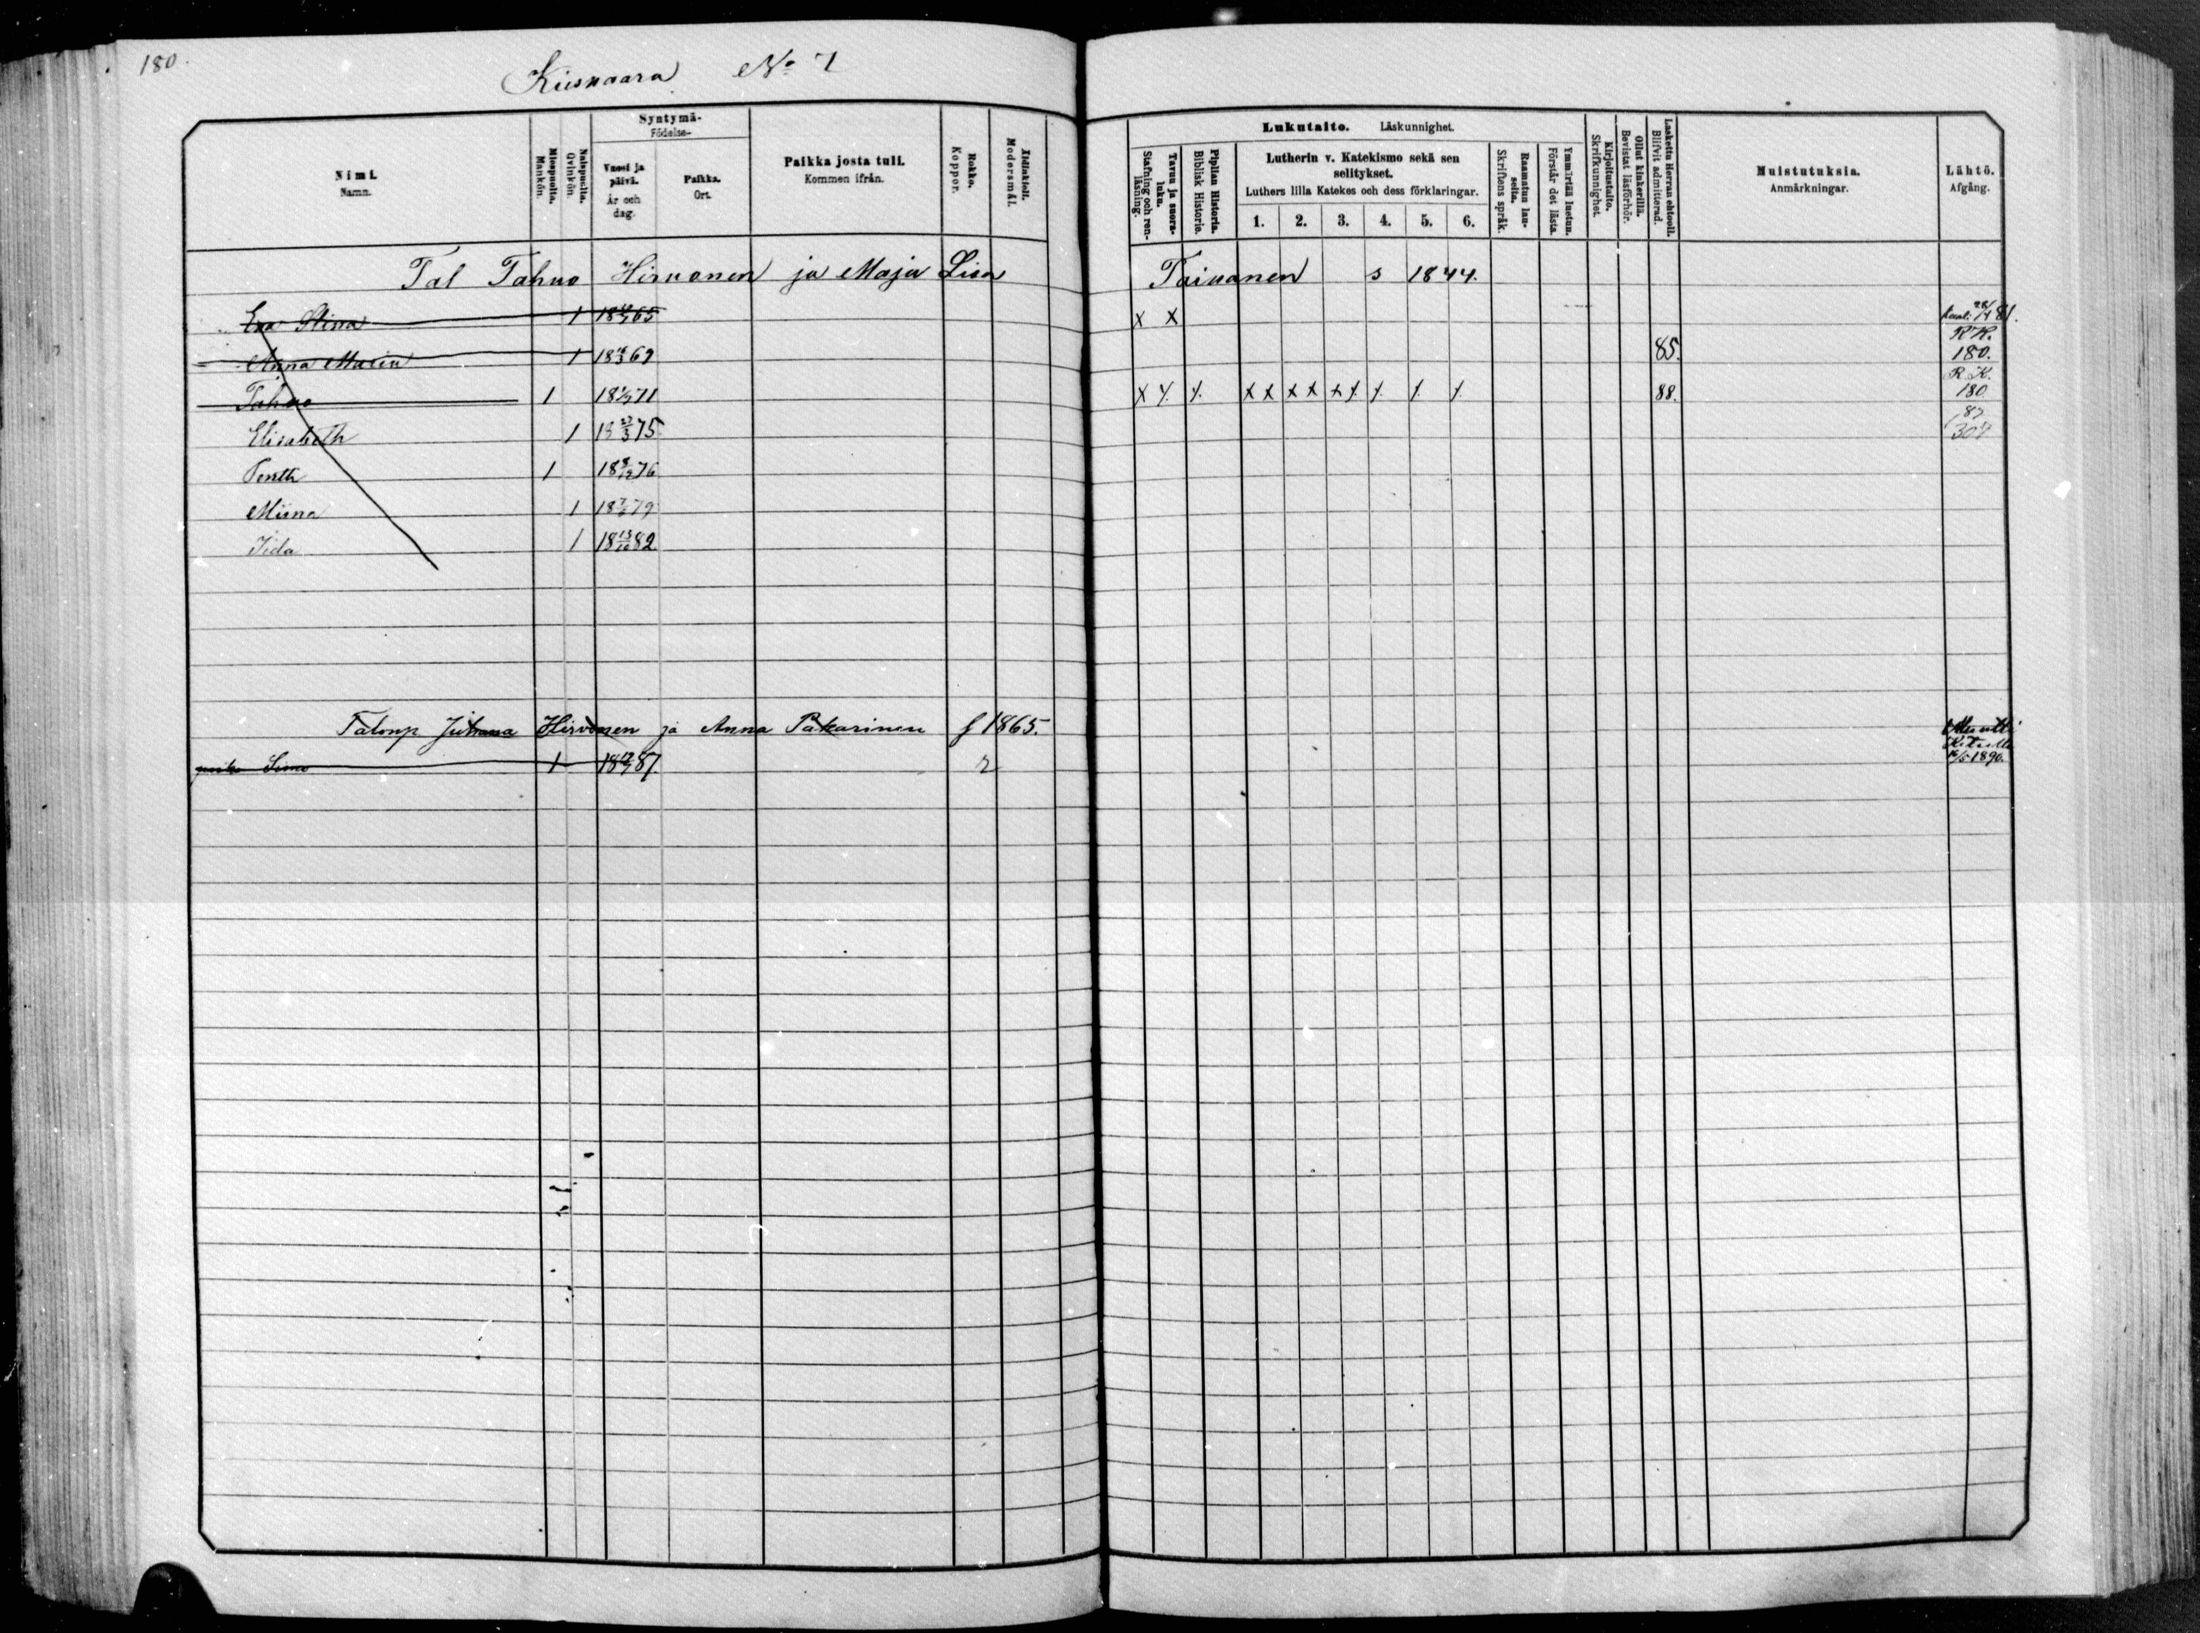 180.
Kiisvaara No 7
Nimi. Namn.
Miespuolia. Mankön.
Naispuolia. Qvinkön.
Syntymä- Födelse-
Vuosi ja päivä. År och dag.
Paikka. Ort.
Paikka josta tuli. Kommen ifrån.
Rokko. Koppor.
Äidinkieli. Modersmål.
Lukutaito. Läskunnighet.
Tavuu ja suora-luku. Stafning och ren-läsning.
Piplian Historia. Biblisk Historie.
Lutherin v. Katekismo sekä sen selitykset.
Luthers lilla Katekes och dess förklaringar.
1. 2. 3. 4. 5. 6.
Raamatun lau-seita. Skriftens språk.
Ymmärtää luetun. Förstår det lästa.
Kirjoitustaito. Skrifkunnighet.
Ollut kinkerillä. Bevistat läsförhör.
Laskettu Herran ehtoolI. Blifvit admitterad.
Muistutuksia. Anmärkningar.
Lähtö. Afgång.
Tal Tahvo Hirvonen ja Maja Lisa Taivanen s 1844.
Eva Stina 1 65 x x 81.
Anna Maria 1 69 85. R.K. 180.
Tahvo 1 71 88. R.K. 180
Elisabeth 1 18 75 87 304
Pentti 1 18 8/12 76
Miina 1 18 79
Iida 1 18 13/10 82
Talonp Juhana Hirvonen ja Anna Pakarinen f 1865.
Simo 1 87. r 1890.